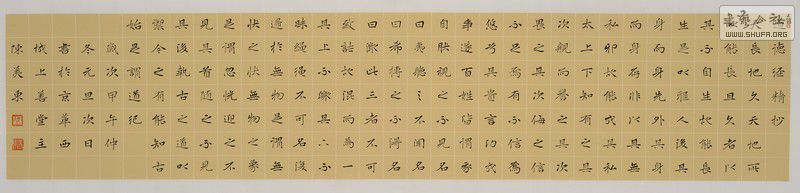 道德經精抄
天長地久天地所
以能長且久者以
其不自生故能長
生是以聖人後其
身而身先外其身
而身存非以其無
私邪故能成其私
太上下知有之其
次親而譽之其次
畏之其次侮之信
不足焉有不信焉
悠兮其貴言功成
事遂百姓皆謂我
自然視之不見名
曰夷聽之不聞名
曰希搏之不得名
曰微此三者不可
致詰故混而為一
其上不皦其下不
昧繩繩不可名復
歸於無物是謂無
狀之狀無物之象
是謂惚恍迎之不
見其首隨之不見
其後執古之道以
御今之有能知古
始是謂道紀
歲次甲午仲
冬元旦次日
書於京華西
城上善堂主
陳美東
WWW.SHUFA.ORG